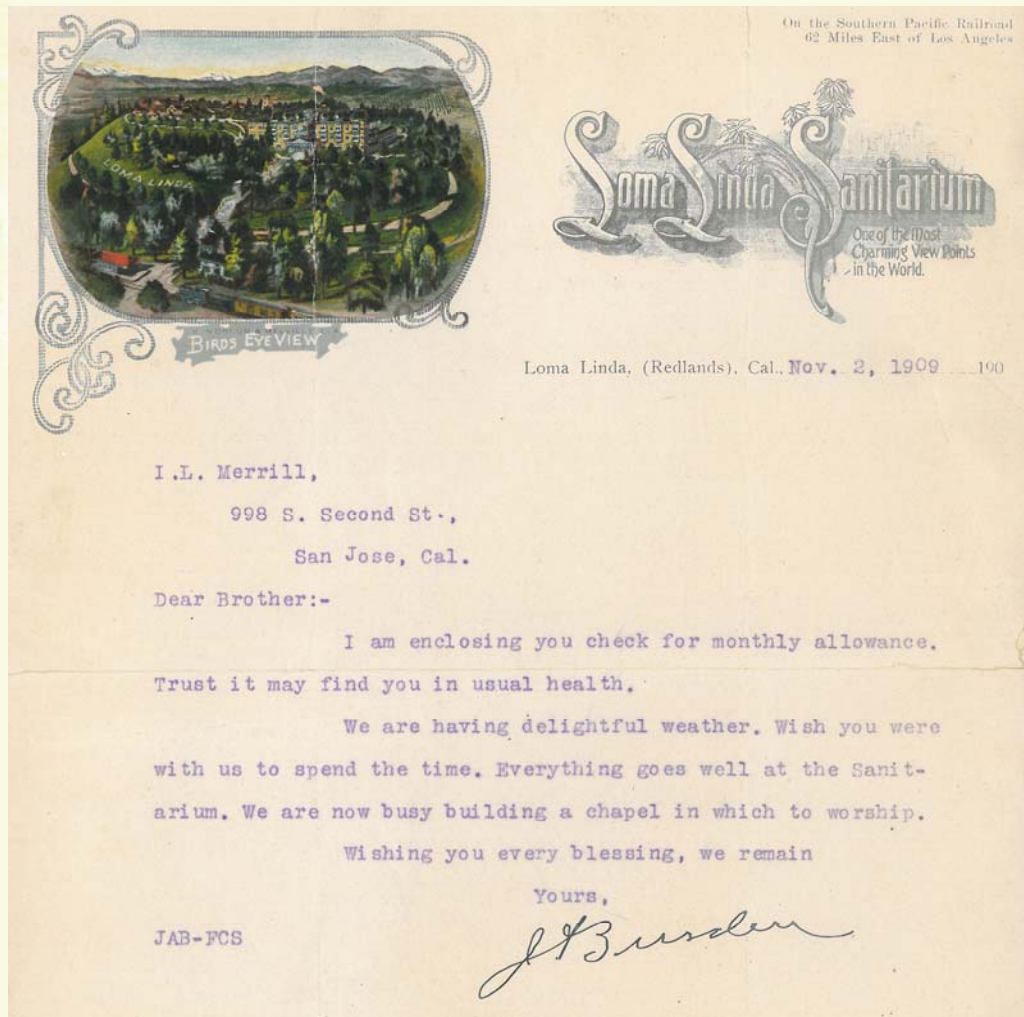 On the Southern Pacific Railroad
62 Miles East of Los Angeles
LOMA LINDA
Loma Linda Sanitarium
One of the Most
Charming View Points
in the World.
BIRDS EYE VIEW
Loma Linda, (Redlands), Cal., Nov. 2, 1909 190
I.L. Merrill,
998 S. Second St.,
San Jose, Cal.
Dear Brother:-
I am enclosing you check for monthly allowance.
Trust it may find you in usual health.
We are having delightful weather. Wish you were
with us to spend the time. Everything goes well at the Sanit-
arium. We are now busy building a chapel in which to worship.
Wishing you every blessing, we remain
Yours,
JAB-FCS
J A Burden